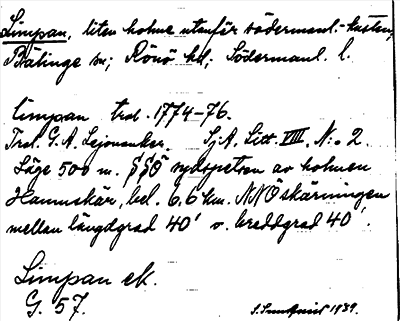 Limpan, liten holme utanför södermanl.-kusten,
Bälinge sn; Rönö hd; Södermanl. l.
limpan trol. 1774-76.
Trol. G. A. Lejonanker. Sj.A. Litt. VIII. N:o 2.
Läge 500 m. SSÖ sydspetsen av holmen
Hamnskär, bel. 6.6 km. NNÖ skärningen
mellan längdgrad 40' o. breddgrad 40'.
Limpan ek.
G. 57.
1939.